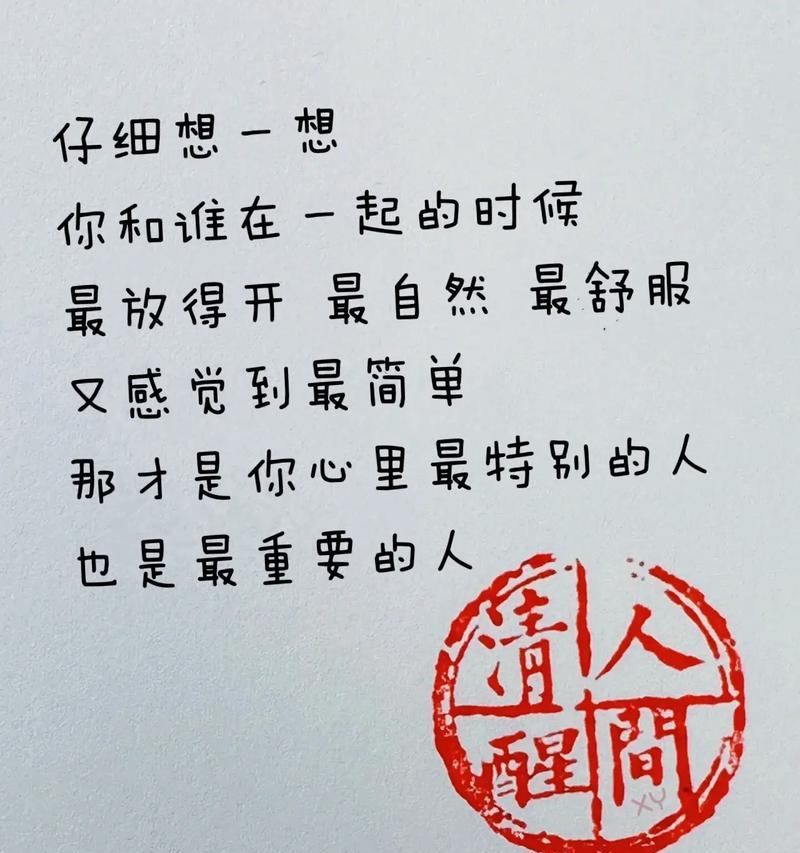 仔细想一想
你和谁在一起的时候
最放得开 最自然 最舒服
又感觉到最简单
那才是你心里最特别的人
也是最重要的人
人間
清醒
XY